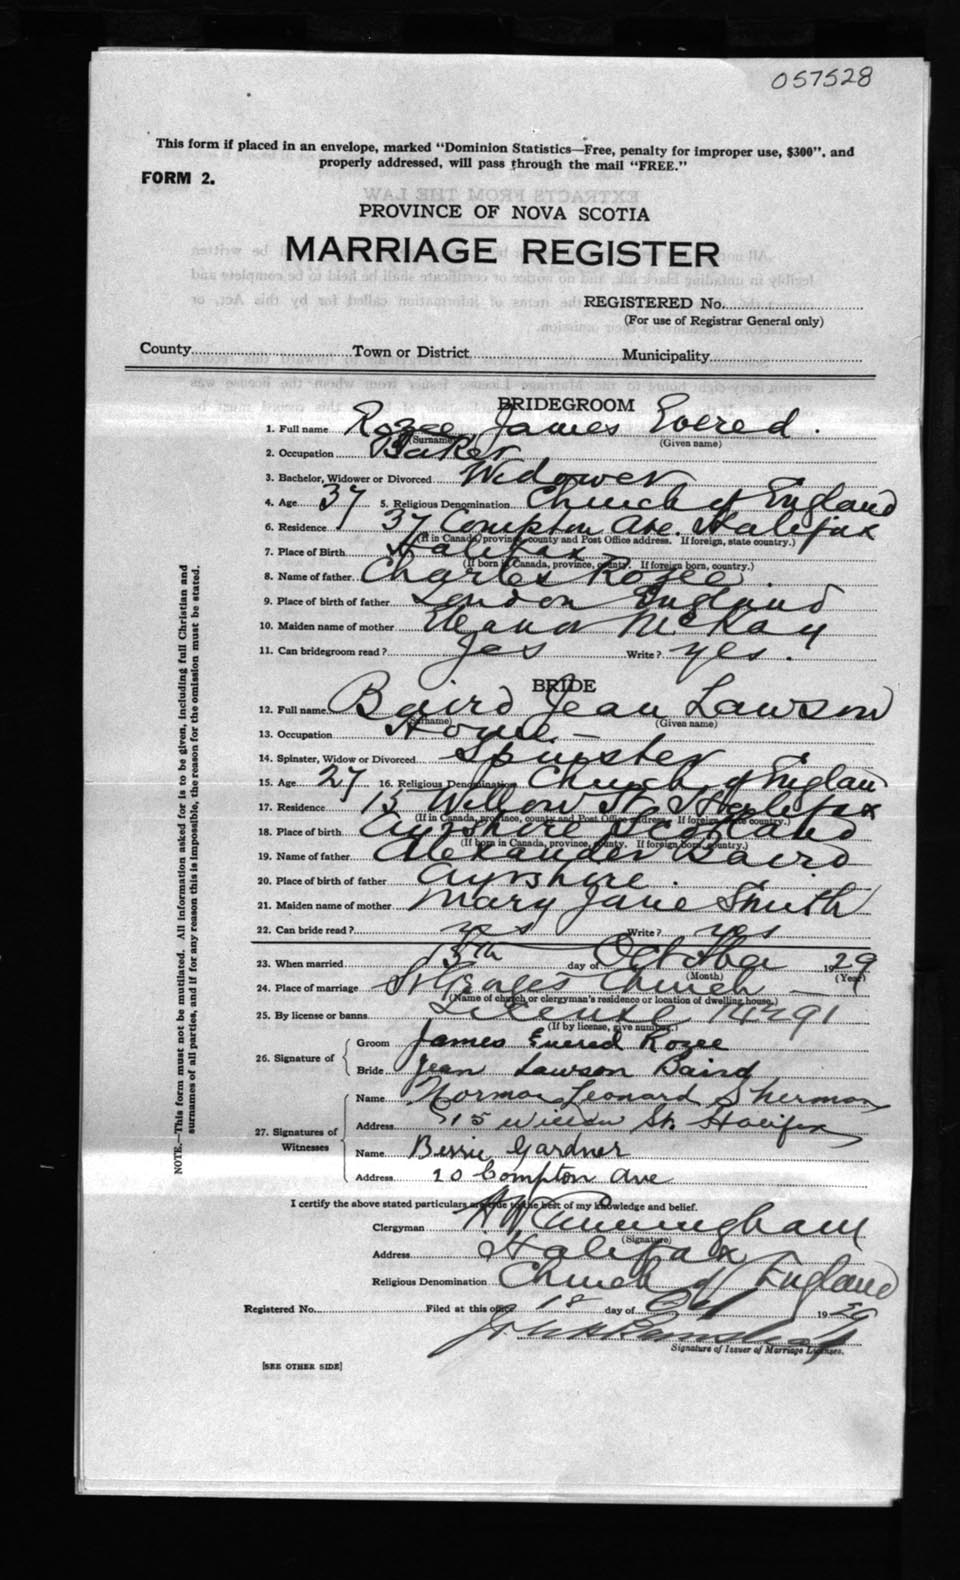 057528
This form if placed in an envelope, marked "Dominion Statistics—Free, penalty for improper use, $300", and
properly addressed, will pass through the mail "FREE."
FORM 2.
PROVINCE OF NOVA SCOTIA
MARRIAGE REGISTER
REGISTERED No.
(For use of Registrar General only)
County Town or District Municipality
BRIDEGROOM
1. Full name Rozee James Evered.
(Surname) (Given name)
2. Occupation Baker
3. Bachelor, Widower or Divorced Widower
4. Age 37 5. Religious Denomination Church of England
6. Residence 37 Compton Ave. Halifax
(If in Canada, province, county and Post Office address. If foreign, state country.)
7. Place of Birth Halifax
(If born in Canada, province, county. If foreign born, country.)
8. Name of father Charles Rozee.
9. Place of birth of father London England
10. Maiden name of mother Eleanor McKay
11. Can bridegroom read? Yes Write? yes.
BRIDE
12. Full name Baird Jean Lawson
(Surname) (Given name)
13. Occupation Home —
14. Spinster, Widow or Divorced Spinster
15. Age 27 16. Religious Denomination Church of Englan
17. Residence 15 Willow St. Halifax
(If in Canada, province, county and Post Office address. If foreign, state country.)
18. Place of birth Ayrshire Scotland
(If born in Canada, province, county. If foreign born, country.)
19. Name of father Alexander Baird
20. Place of birth of father Ayrshire.
21. Maiden name of mother Mary Jane Smith
22. Can bride read? yes Write? yes
23. When married day of October 1929
(Month) (Year)
24. Place of marriage St Georges Church
(Name of church or clergyman's residence or location of dwelling house.)
25. By license or banns License 14291
(If by license, give number.)
26. Signature of Groom James Evered Rozee
Bride Jean Lawson Baird
27. Signatures of Witnesses Name Norman Leonard Sherman
Address 15 Willow St. Halifax
Name Bessie Gardner
Address 20 Compton Ave
I certify the above stated particulars are true to the best of my knowledge and belief.
Clergyman H W Cunningham
(Signature)
Address Halifax
Religious Denomination Church of England
Registered No. Filed at this office 18 day of Oct 1929
Signature of Issuer of Marriage Licenses.
[SEE OTHER SIDE]
NOTE.—This form must not be mutilated. All information asked for is to be given, including full Christian and
surnames of all parties, and if for any reason this is impossible, the reason for the omission must be stated.